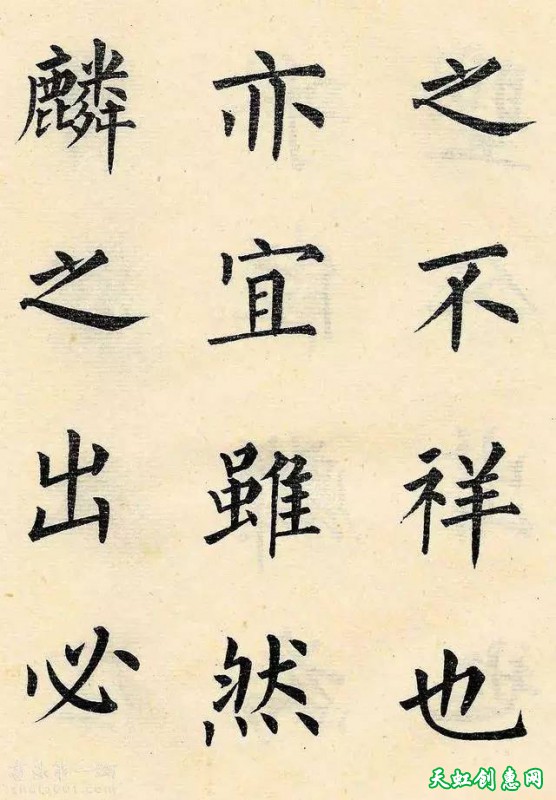 之不祥也
亦宜雖然
麟之出必
天虹创惠网